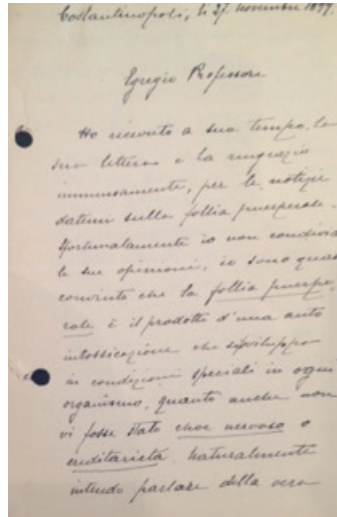 Costantinopoli, li 27. novembre 1899.
Egregio Professore
Ho ricevuto a suo tempo, la
sua lettera e la ringrazio
immensamente, per le notizie
datemi sulla follia puerperale.
Sfortunatamente io non condivido
le sue opinioni, io sono quasi
convinto che la follia puerpe,
rale è il prodotto d'una auto
intossicazione che si sviluppa
in condizioni speciali in ogni
organismo, quanto anche non
vi fosse stato choc nervoso o
ereditarietà. Naturalmente
intendo parlare della vera